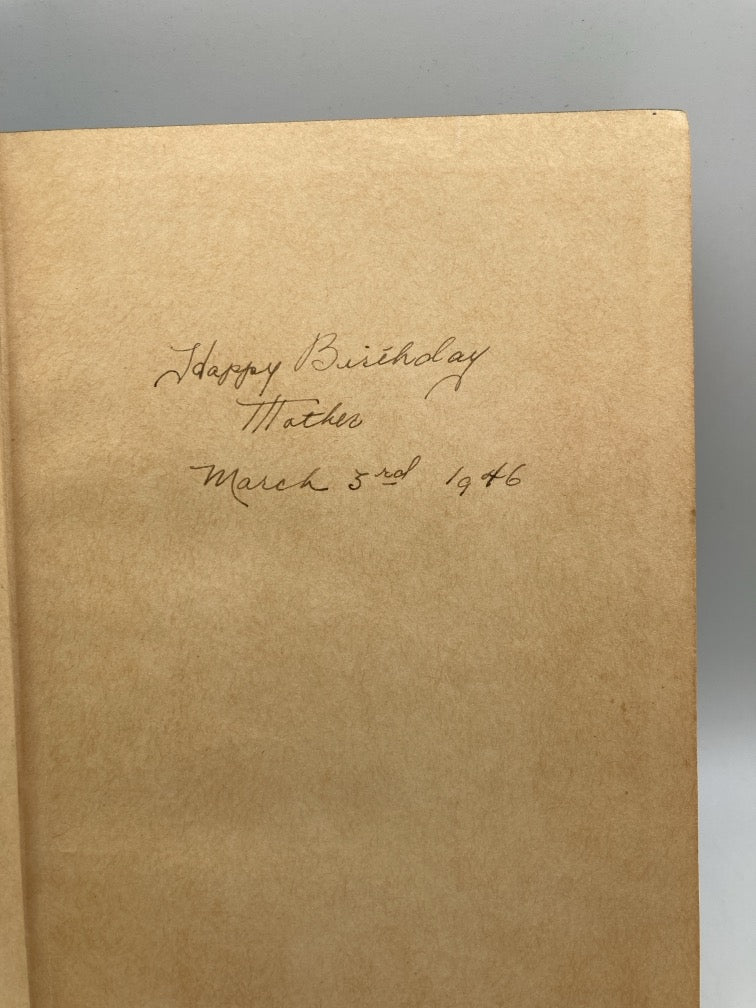 Happy Birthday
Mother
March 3rd 1946